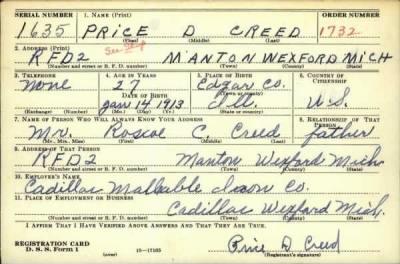 SERIAL NUMBER 1. NAME (Print) ORDER NUMBER
1635 PRICE D CREED 1732
(First) (Middle) (Last)
2. ADDRESS (Print)
RFD2 MANTON WEXFORD MICH
(Number and street or R. F. D. number) (Town) (County) (State)
3. TELEPHONE 4. AGE IN YEARS 5. PLACE OF BIRTH 6. COUNTRY OF CITIZENSHIP
None 27 Edgar Co.
DATE OF BIRTH (Town or county)
Jan 14 1913 Ill. U.S.
(Exchange) (Number) (Mo.) (Day) (Yr.) (State or country)
7. NAME OF PERSON WHO WILL ALWAYS KNOW YOUR ADDRESS 8. RELATIONSHIP OF THAT PERSON
Mr. Roscoe C. Creed father
(Mr., Mrs., Miss) (First) (Middle) (Last)
9. ADDRESS OF THAT PERSON
RFD2 Manton Wexford Mich
(Number and street or R. F. D. number) (Town) (County) (State)
10. EMPLOYER'S NAME
Cadillac Mallable Iron Co.
11. PLACE OF EMPLOYMENT OR BUSINESS
Cadillac Wexford Mich.
(Number and street or R. F. D. number) (Town) (County) (State)
I AFFIRM THAT I HAVE VERIFIED ABOVE ANSWERS AND THAT THEY ARE TRUE.
REGISTRATION CARD
D. S. S. Form 1 (over) 16—17105 Price D Creed
(Registrant's signature)